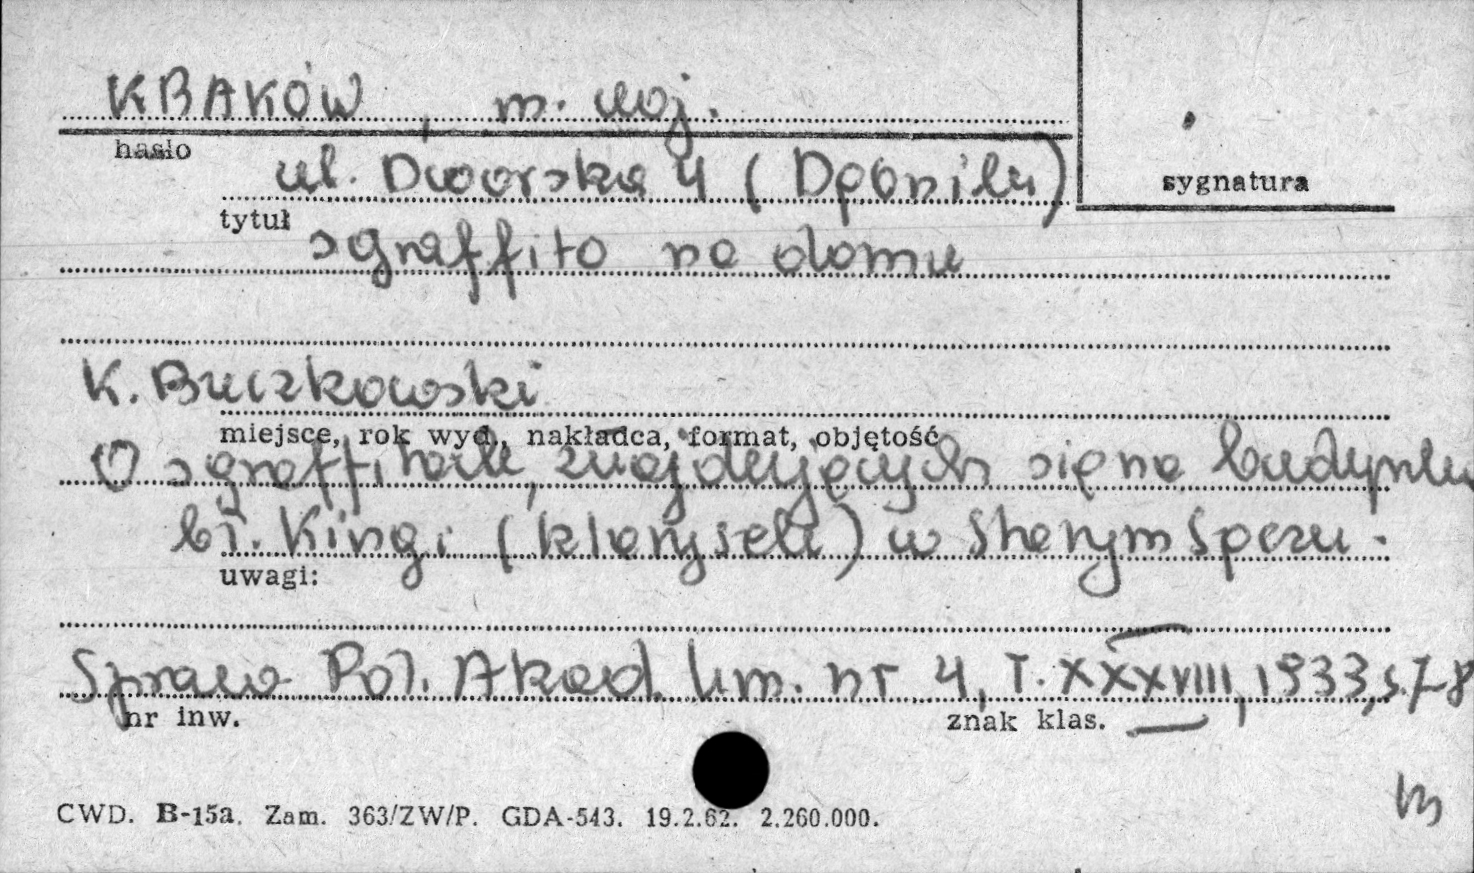 KRAKÓW, m. woj.
hasło
sygnatura
ul. Dworska 4 (Dębniki)
tytuł
sgraffito na domu
K. Buczkowski
miejsce, rok wyd., nakładca, format, objętość
O sgraffitach, znajdujących się na budynku
bł. Kingi (klarysek) w Starym Sączu.
uwagi:
Spraw. Pol. Akad. Um. nr 4, T. XXXVIII, 1933, s. 7-8
nr inw.
znak klas.
CWD. B-15a. Zam. 363/ZW/P. GDA-543. 19.2.62. 2.260.000.